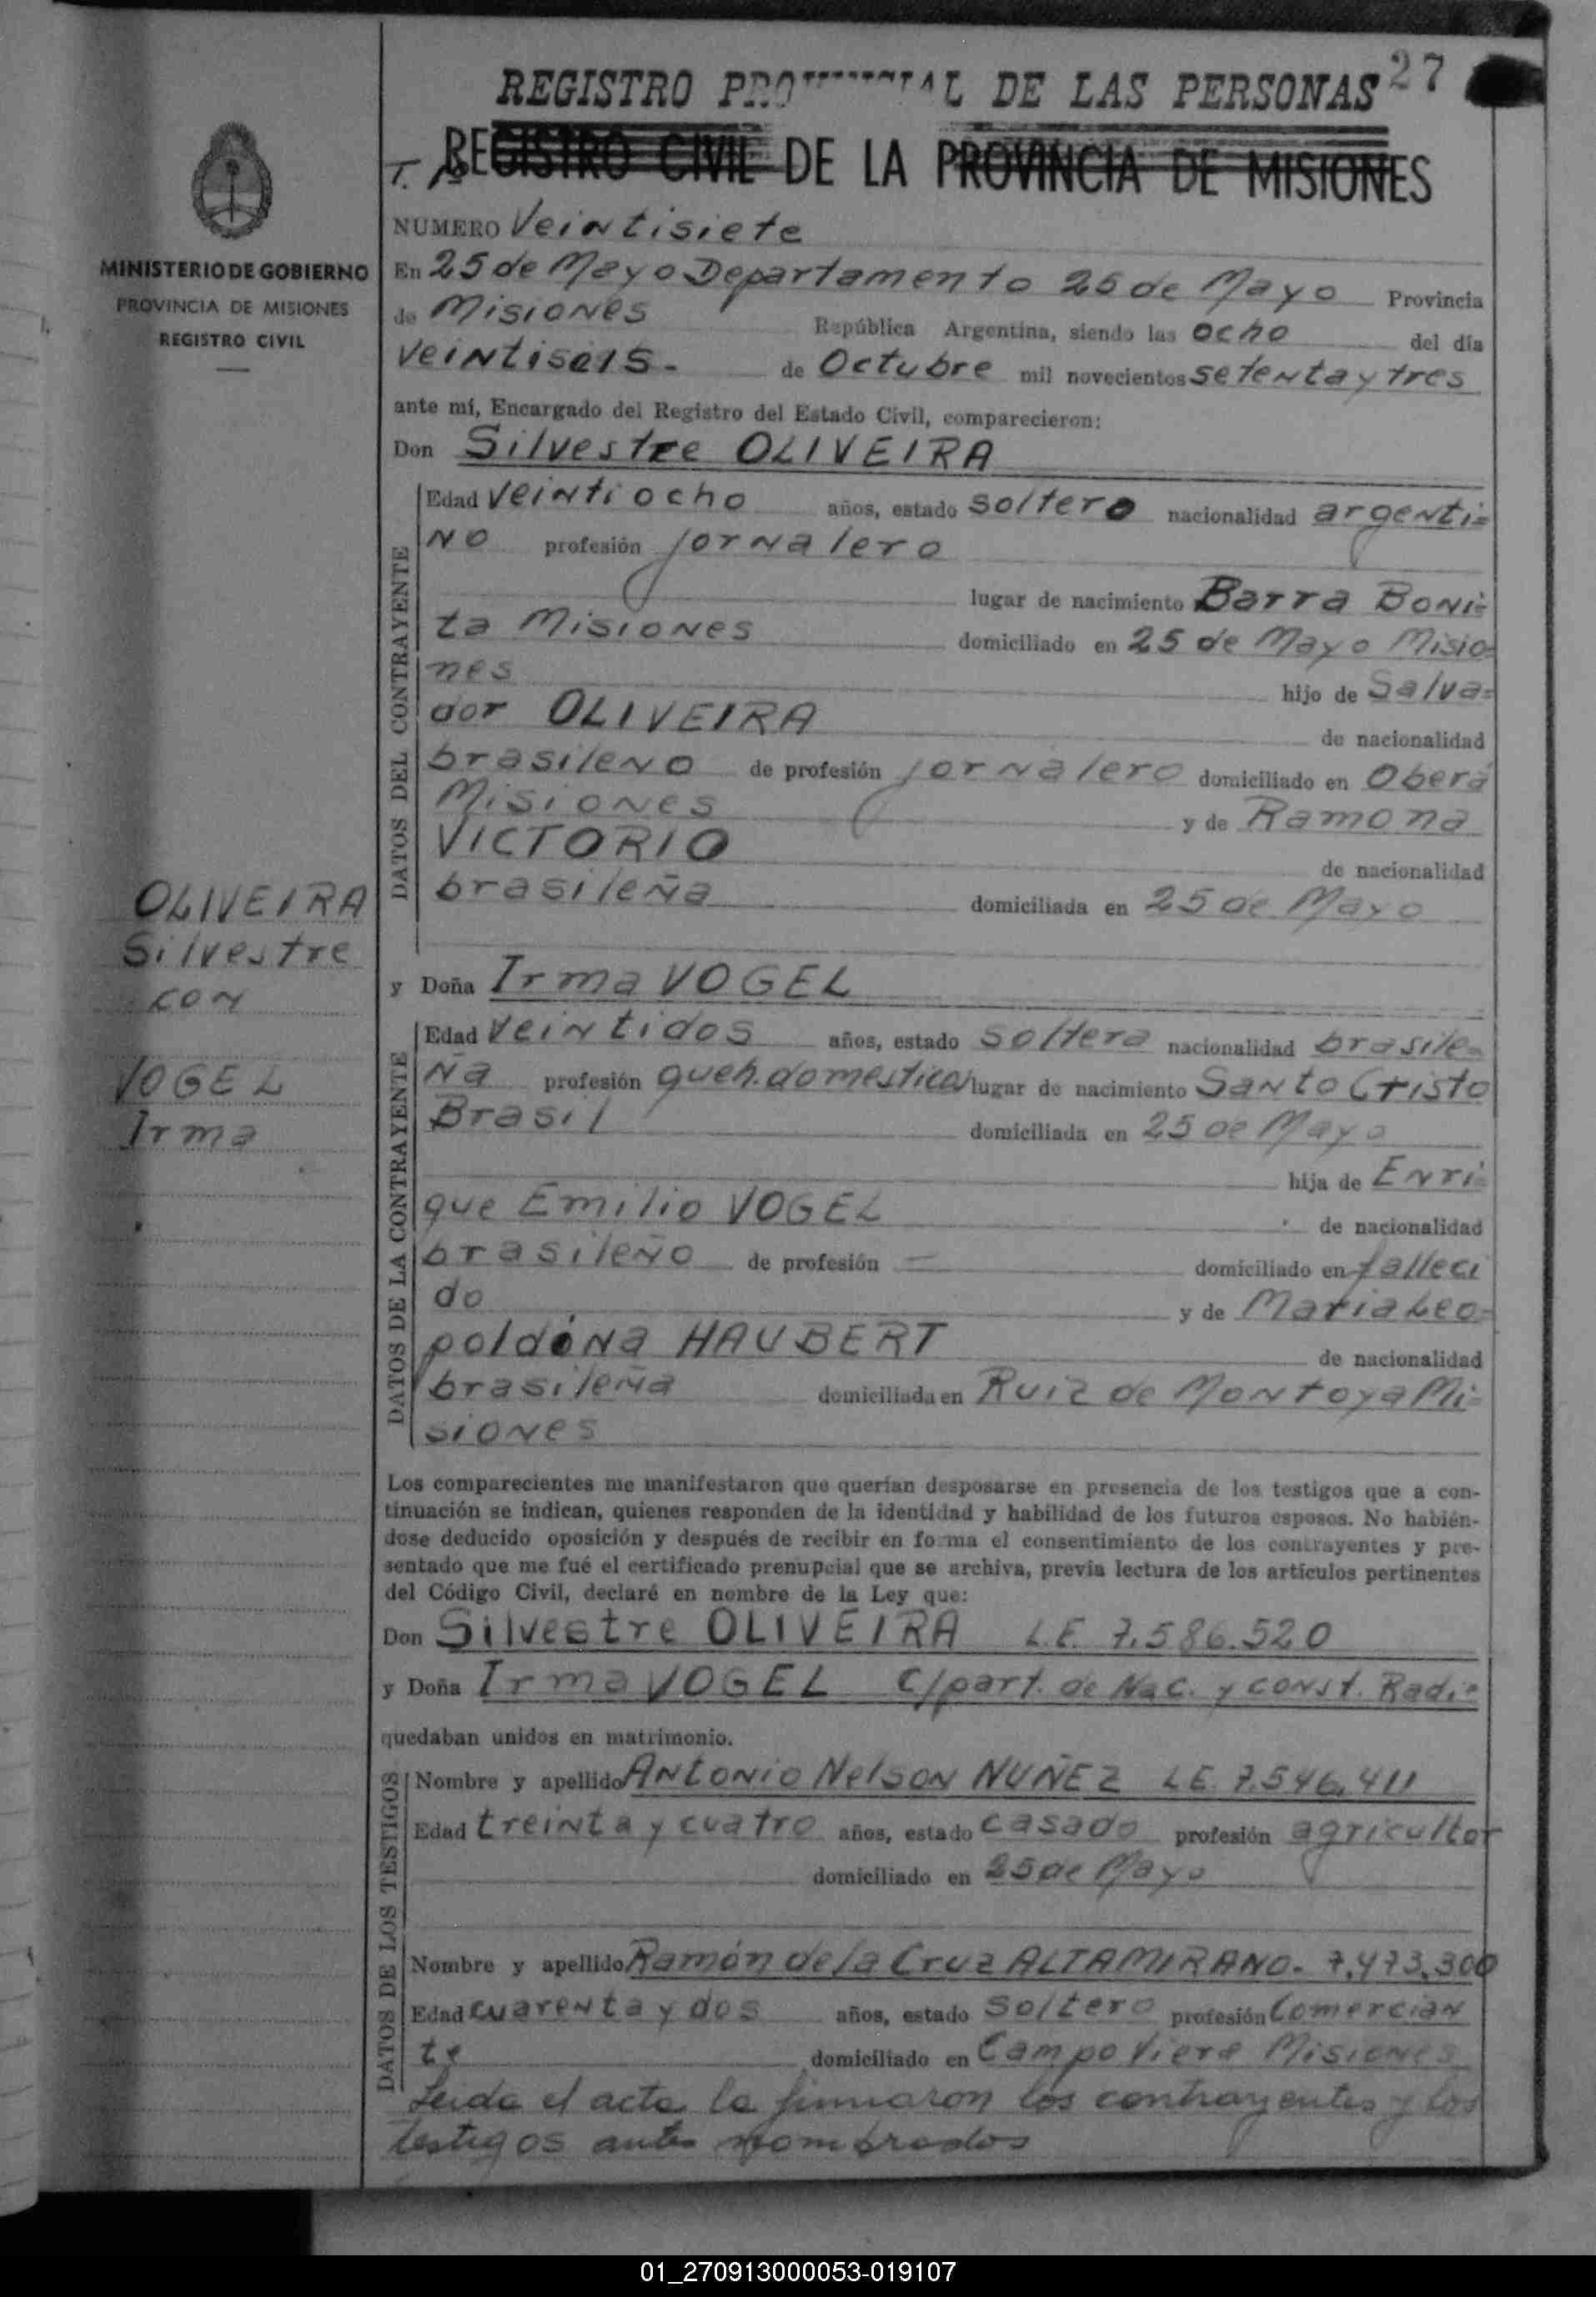 REGISTRO PROVINCIAL DE LAS PERSONAS 27
REGISTRO CIVIL DE LA PROVINCIA DE MISIONES
NUMERO Veintisiete
MINISTERIO DE GOBIERNO
PROVINCIA DE MISIONES
REGISTRO CIVIL
En 25 de Mayo Departamento 25 de Mayo Provincia
de Misiones República Argentina, siendo las ocho del día
veintiseis.- de Octubre mil novecientos setenta y tres
ante mí, Encargado del Registro del Estado Civil, comparecieron:
Don Silvestre OLIVEIRA
DATOS DEL CONTRAYENTE
Edad veintiocho años, estado soltero nacionalidad argenti=
no profesión jornalero
lugar de nacimiento Barra Boni=
ta Misiones domiciliado en 25 de Mayo Misio=
nes hijo de Salva=
dor OLIVEIRA de nacionalidad
brasileno de profesión jornalero domiciliado en Oberá
Misiones y de Ramona
VICTORIO de nacionalidad
brasileña domiciliada en 25 de Mayo
OLIVEIRA
Silvestre
con
VOGEL
Irma
y Doña Irma VOGEL
DATOS DE LA CONTRAYENTE
Edad veintidos años, estado soltera nacionalidad brasile=
ña profesión queh. domesticos lugar de nacimiento Santo Cristo
Brasil domiciliada en 25 de Mayo
hija de Enri=
que Emilio VOGEL de nacionalidad
brasileño de profesión — domiciliado en falleci
do y de Maria Leo=
poldina HAUBERT de nacionalidad
brasileña domiciliada en Ruiz de Montoya Mi=
siones
Los comparecientes me manifestaron que querían desposarse en presencia de los testigos que a con-
tinuación se indican, quienes responden de la identidad y habilidad de los futuros esposos. No habién-
dose deducido oposición y después de recibir en forma el consentimiento de los contrayentes y pre-
sentado que me fué el certificado prenupcial que se archiva, previa lectura de los artículos pertinentes
del Código Civil, declaré en nombre de la Ley que:
Don Silvestre OLIVEIRA L.E. 7.586.520
y Doña Irma VOGEL C/part. de Nac. y const. Radic
quedaban unidos en matrimonio.
DATOS DE LOS TESTIGOS
Nombre y apellido Antonio Nelson NUÑEZ LE. 7.546.411
Edad treinta y cuatro años, estado casado profesión agricultor
domiciliado en 25 de Mayo
Nombre y apellido Ramón de la Cruz ALTAMIRANO. 7.473.300
Edad cuarenta y dos años, estado soltero profesión Comercian
te domiciliado en Campo Viera Misiones
Leida el acta la firmaron los contrayentes y los
testigos antes nombrados
01_270913000053-019107